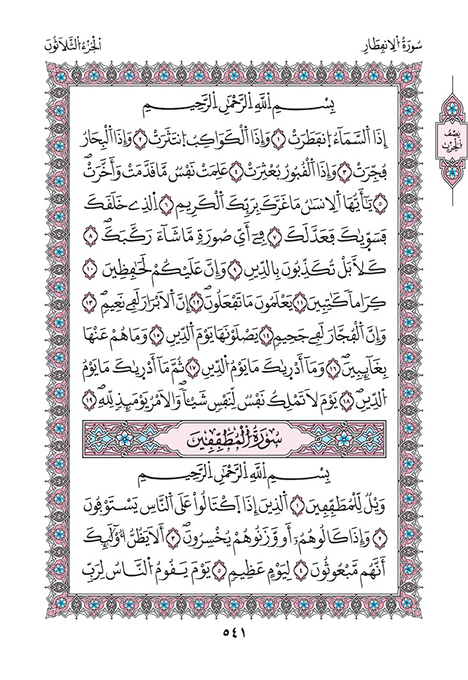 سُورَةُ اُ۬لِانفِطَارِ
اَلْجُزْءُ اُ۬لثَّلَاثُونَ
نِصْف
اَلْحِزْب
بِسْمِ اِ۬للَّهِ اِ۬لرَّحْمَٰنِ اِ۬لرَّحِيمِ
إِذَا اَ۬لسَّمَآءُ اُ۪نفَطَرَتْ ١ وَإِذَا اَ۬لْكَوَاكِبُ اُ۪نتَثَرَتْ ٢ وَإِذَا اَ۬لْبِحَارُ
فُجِّرَتْ ٣ وَإِذَا اَ۬لْقُبُورُ بُعْثِرَتْ ٤ عَلِمَتْ نَفْسٞ مَّا قَدَّمَتْ وَأَخَّرَتْ
٥ يَٰٓأَيُّهَا اَ۬لِانسَٰنُ مَا غَرَّكَ بِرَبِّكَ اَ۬لْكَرِيمِ ٦ اِ۬لذِے خَلَقَكَ
فَسَوّ۪يٰكَ فَعَدَّلَكَ ٧ فِےٓ أَيِّ صُورَةٖ مَّا شَآءَ رَكَّبَكَ ٨
كَلَّا بَلْ تُكَذِّبُونَ بِالدِّينِ ٩ وَإِنَّ عَلَيْكُمْ لَحَٰفِظِينَ ١٠
كِرَاماٗ كَٰتِبِينَ ١١ يَعْلَمُونَ مَا تَفْعَلُونَ ١٢ إِنَّ اَ۬لَابْرَارَ لَفِے نَعِيمٖ ١٣
وَإِنَّ اَ۬لْفُجَّارَ لَفِے جَحِيمٖ ١٤ يَصْلَوْنَهَا يَوْمَ اَ۬لدِّينِ ١٥ وَمَا هُمْ عَنْهَا
بِغَآئِبِينَ ١٦ وَمَآ أَدْر۪يٰكَ مَا يَوْمُ اُ۬لدِّينِ ١٧ ثُمَّ مَآ أَدْر۪يٰكَ مَا يَوْمُ
اُ۬لدِّينِ ١٨ يَوْمَ لَا تَمْلِكُ نَفْسٞ لِّنَفْسٖ شَيْـٔاٗ وَالَامْرُ يَوْمَئِذٖ لِّلهِ ١٩
سُورَةُ اُ۬لْمُطَفِّفِينَ
بِسْمِ اِ۬للَّهِ اِ۬لرَّحْمَٰنِ اِ۬لرَّحِيمِ
وَيْلٞ لِّلْمُطَفِّفِينَ ١ اَ۬لذِينَ إِذَا اَ۪كْتَالُواْ عَلَى اَ۬لنَّاسِ يَسْتَوْفُونَ
٢ وَإِذَا كَالُوهُمُۥٓ أَو وَّزَنُوهُمْ يُخْسِرُونَ ٣ أَلَا يَظُنُّ أُوْلَٰٓئِكَ
أَنَّهُم مَّبْعُوثُونَ ٤ لِيَوْمٍ عَظِيمٖ ٥ يَوْمَ يَقُومُ اُ۬لنَّاسُ لِرَبِّ
٥٤١